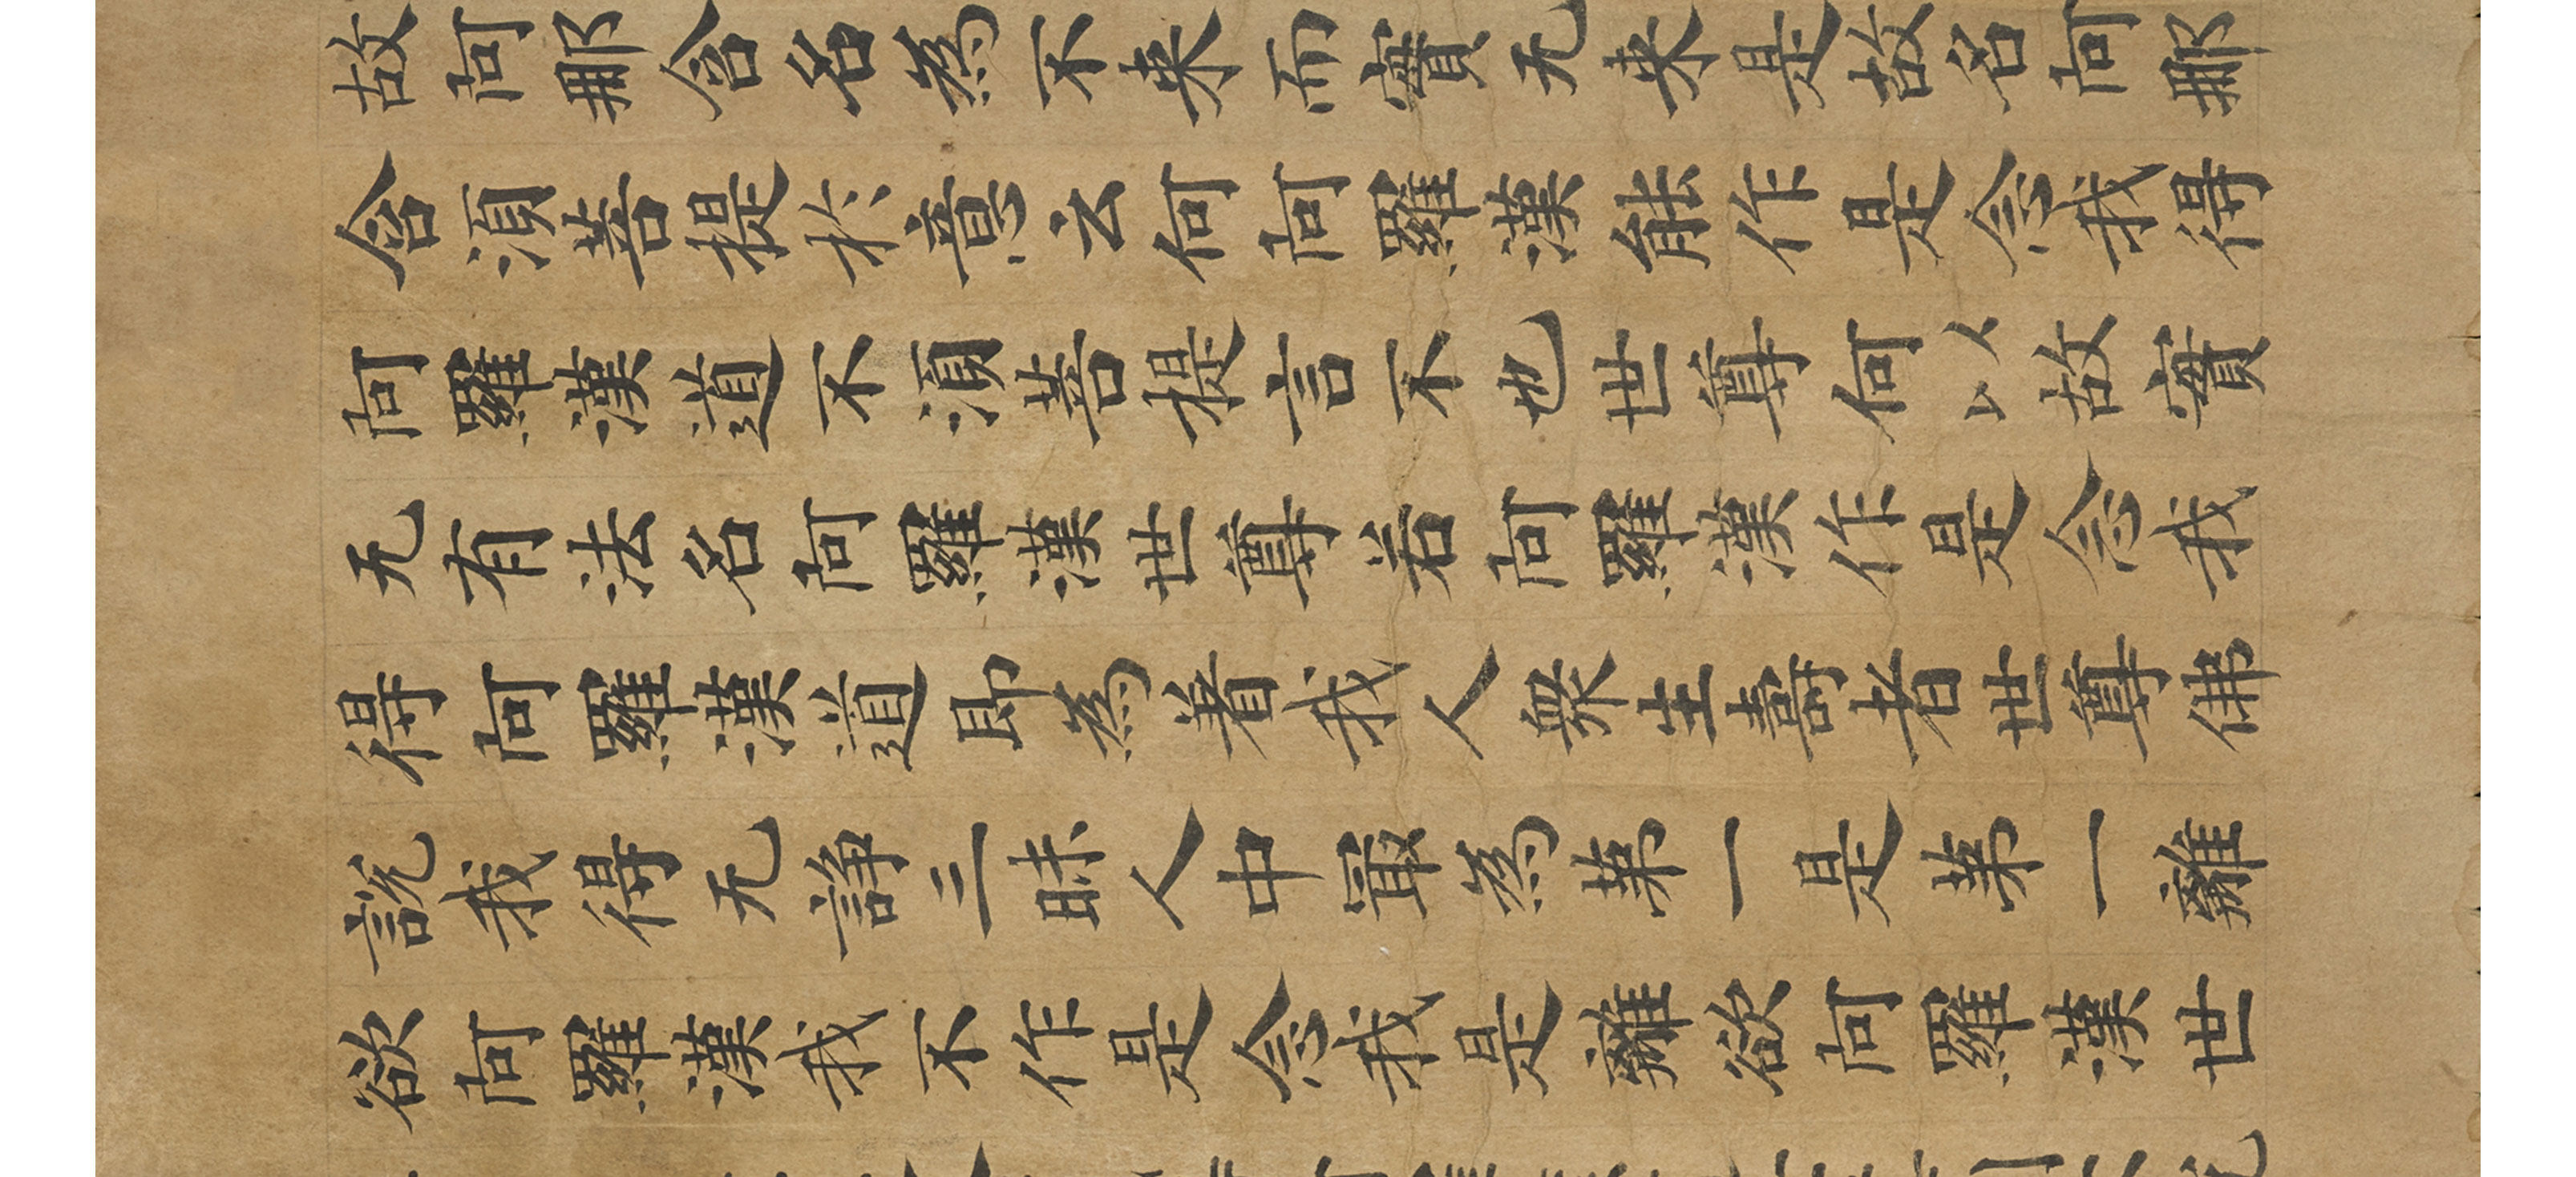 故阿那含名為不来而實无来是故名阿那
含湏菩提扵意云何阿羅漢能作是念我得
阿羅漢道不湏菩提言不也世尊何以故實
无有法名阿羅漢世尊若阿羅漢作是念我
得阿羅漢道即為著我人衆生壽者世尊佛
説我得无諍三昧人中冣為第一是第一離
欲阿羅漢我不作是念我是離欲阿羅漢世